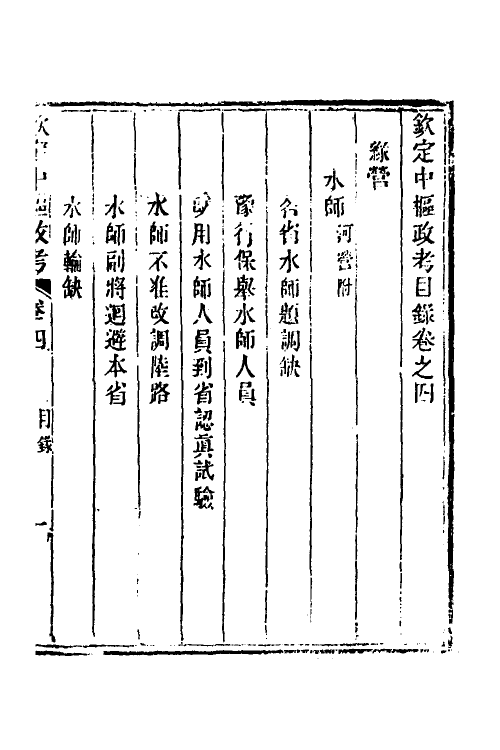 欽定中樞政考目錄卷之四
綠營
水師 河營附
各省水師題調缺
豫行保舉水師人員
水師人員到省認真試驗
水師不准改調陸路
水師副將迴避本省
水師輪缺
欽定中樞政考 卷四 目錄 一